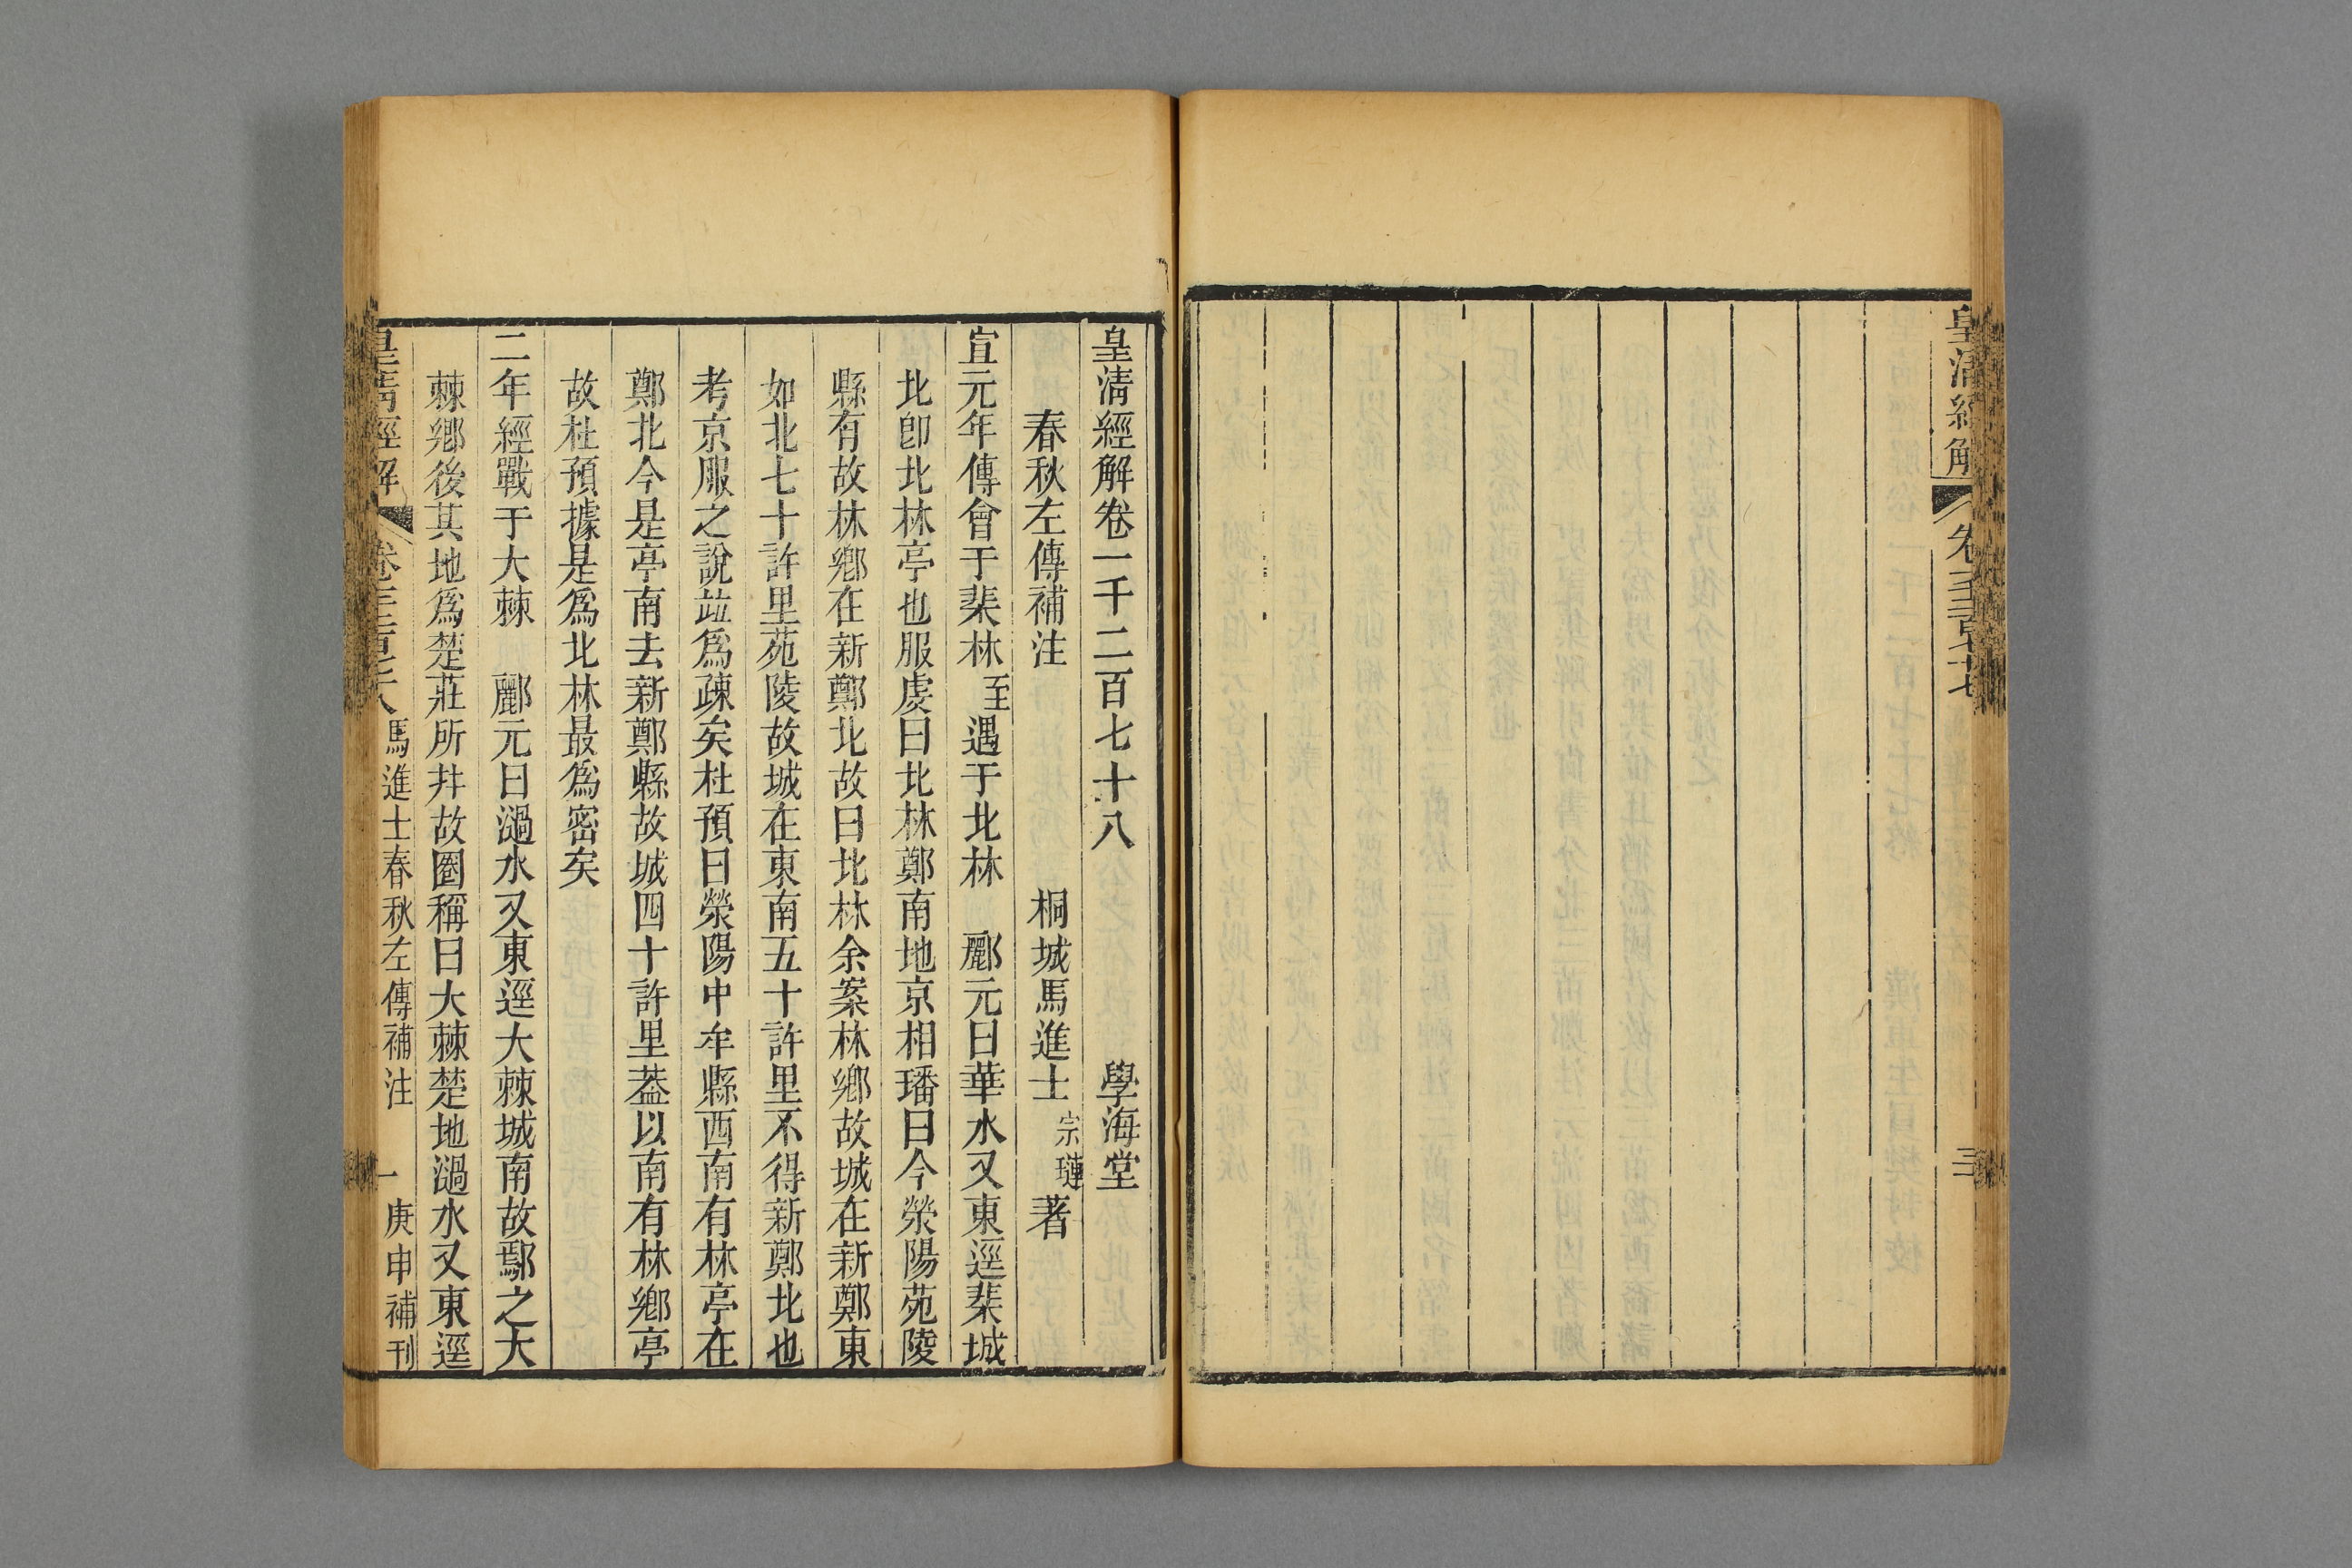 皇清經解
三
皇清經解卷一千二百七十八　學海堂
春秋左傳補注　桐城馬進士宗璉著
宣元年傳會于棐林至遇于北林　酈元曰華水又東逕棐城
北卽北林亭也服虔曰北林鄭南地京相璠曰今滎陽苑陵
縣有故林鄉在新鄭北故曰北林余案林鄉故城在新鄭東
如北七十許里苑陵故城在東南五十許里不得新鄭北也
考京服之說竝爲疎矣杜預曰滎陽中牟縣西南有林亭在
鄭北今是亭南去新鄭縣故城四十許里葢以南有林鄉亭
故杜預據是爲北林最爲密矣
二年經戰于大棘　酈元曰濄水又東逕大棘城南故鄢之大
棘鄉後其地爲楚莊所并故圈稱曰大棘楚地濄水又東逕
皇清經解
馬進士春秋左傳補注　一　庚申補刊